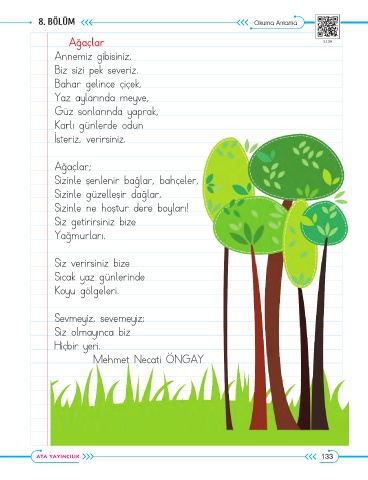 8. BÖLÜM
Okuma Anlama
Ağaçlar
Annemiz gibisiniz,
Biz sizi pek severiz.
Bahar gelince çiçek,
Yaz aylarında meyve,
Güz sonlarında yaprak,
Karlı günlerde odun
İsteriz, verirsiniz.
Ağaçlar;
Sizinle şenlenir bağlar, bahçeler,
Sizinle güzelleşir dağlar,
Sizinle ne hoştur dere boyları!
Siz getirirsiniz bize
Yağmurları.
Siz verirsiniz bize
Sıcak yaz günlerinde
Koyu gölgeleri.
Sevmeyiz, sevemeyiz;
Siz olmayınca biz
Hiçbir yeri.
Mehmet Necati ÖNGAY
ATA YAYINCILIK
133